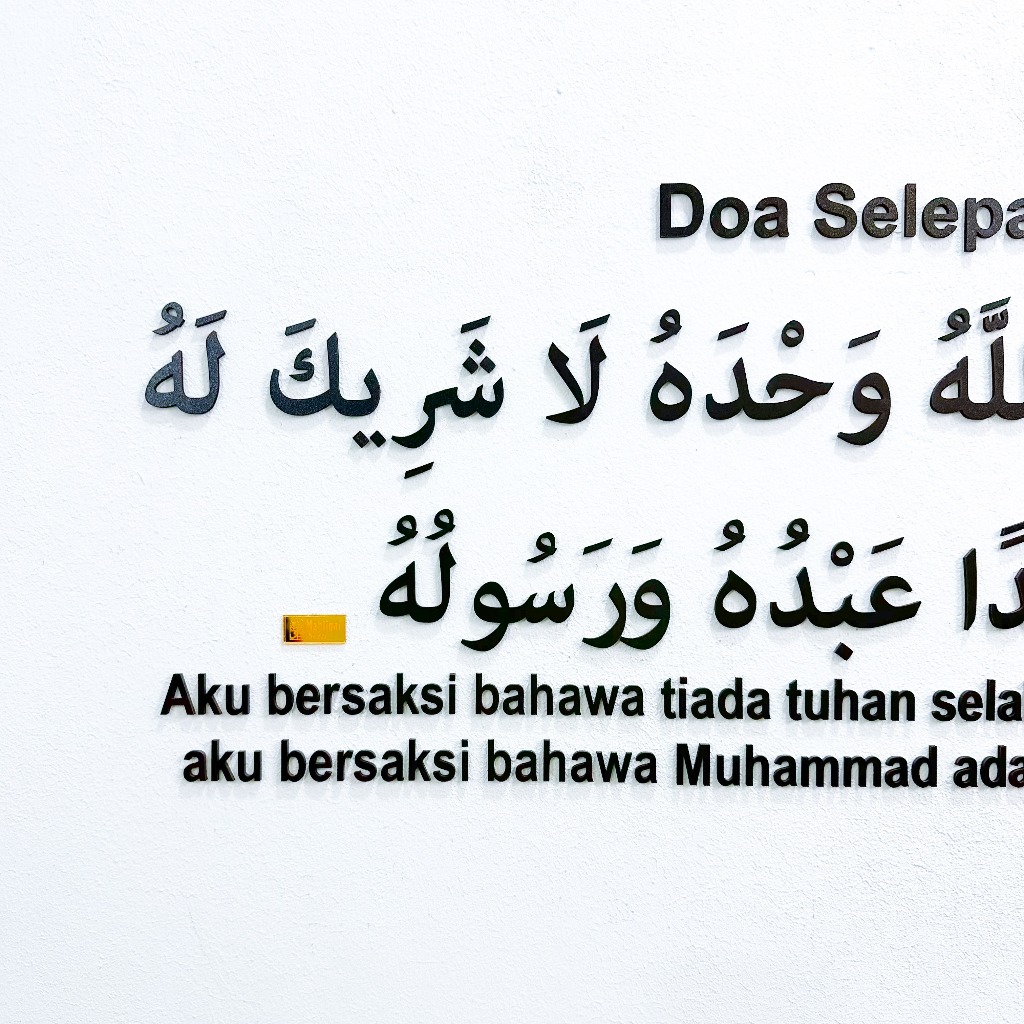 Doa Selepa
اللَّهُ وَحْدَهُ لَا شَرِيكَ لَهُ
دًا عَبْدُهُ وَرَسُولُهُ
Aku bersaksi bahawa tiada tuhan sela
aku bersaksi bahawa Muhammad ada